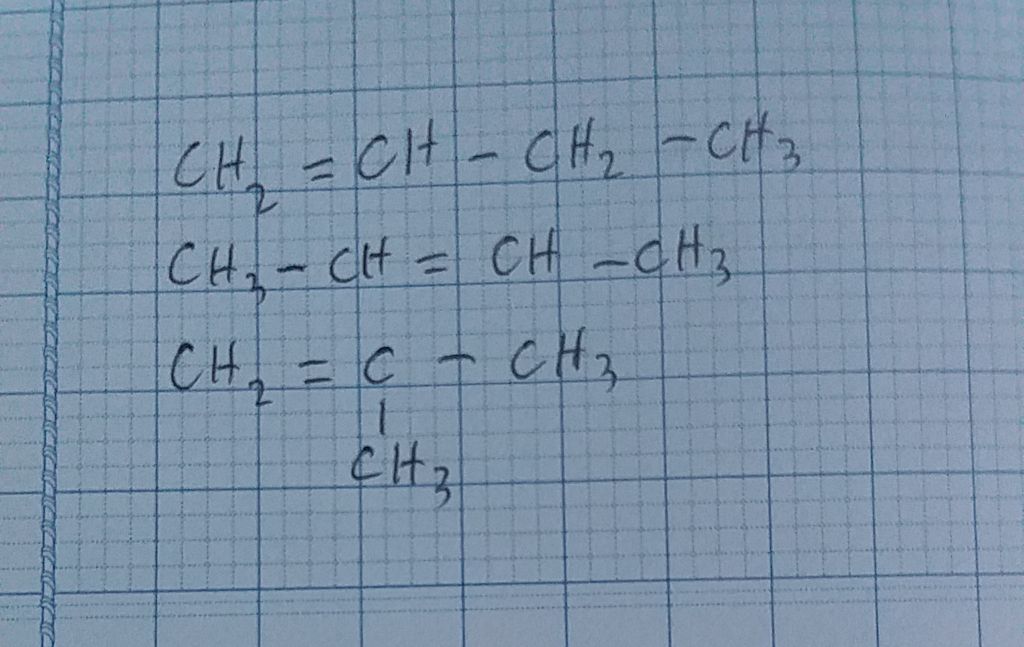 CH₂ = CH - CH₂ - CH₃
CH₃ - CH = CH - CH₃
CH₂ = C - CH₃
|
CH₃